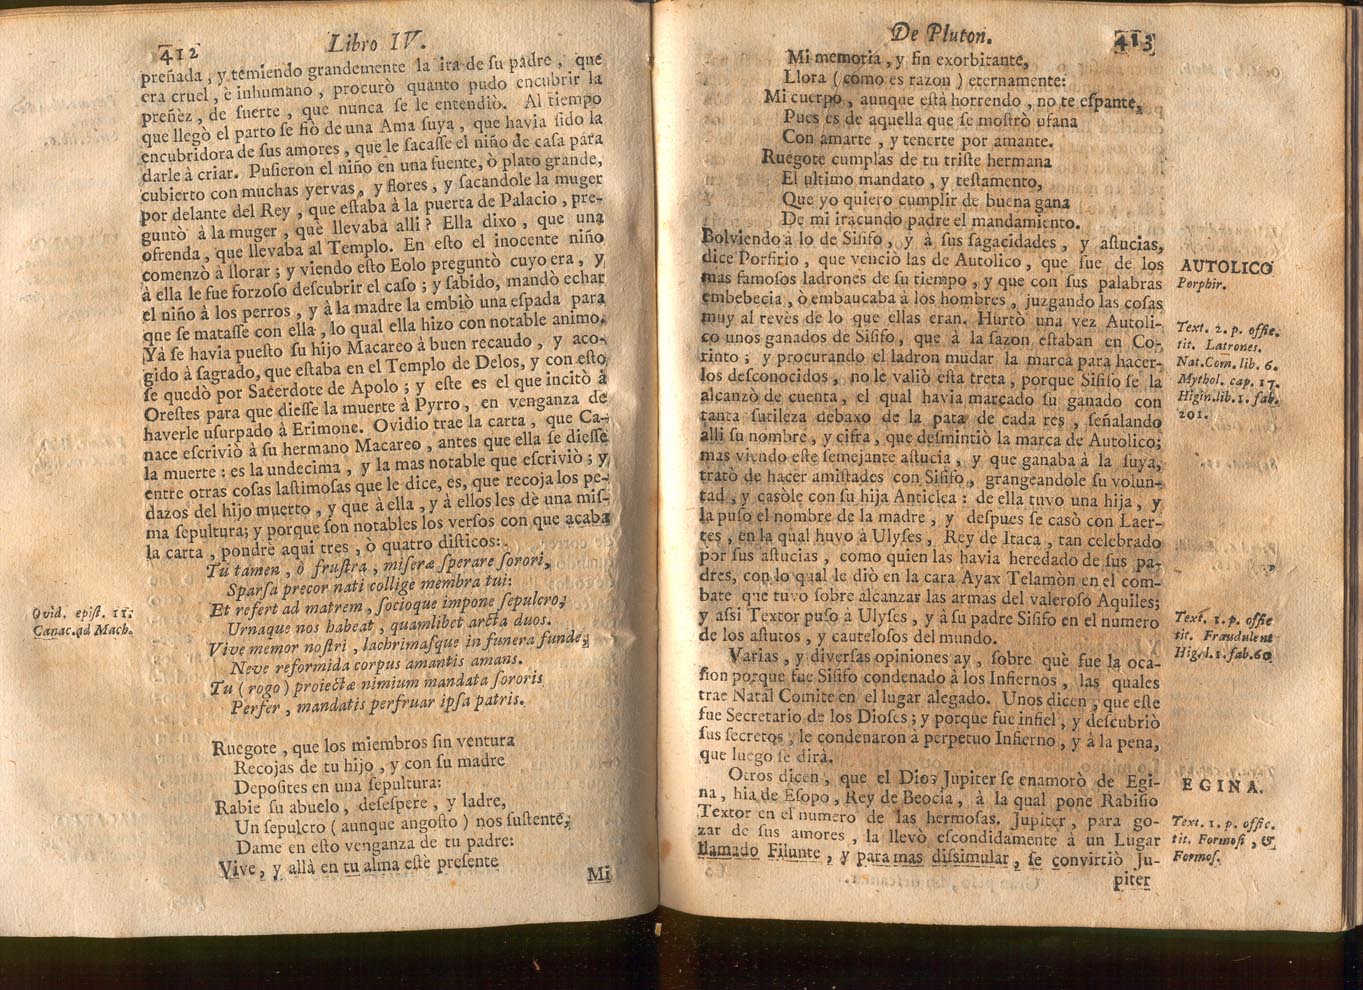 412
Libro IV.
preñada, y temiendo grandemente la ira de ſu padre, que
era cruel, è inhumano, procurò quanto pudo encubrir la
preñèz, de ſuerte, que nunca ſe le entendiò. Al tiempo
que llegò el parto ſe fiò de una Ama ſuya, que havia ſido la
encubridora de ſus amores, que le ſacaſſe el niño de caſa para
darle à criar. Puſieron el niño en una fuente, ò plato grande,
cubierto con muchas yervas, y flores, y ſacandole la muger
por delante del Rey, que eſtaba à la puerta de Palacio, pre-
guntò à la muger, què llevaba alli? Ella dixo, que una
ofrenda, que llevaba al Templo. En eſto el inocente niño
comenzò à llorar; y viendo eſto Eolo preguntò cuyo era, y
à ella le fue forzoſo deſcubrir el caſo; y ſabido, mandò echar
el niño à los perros, y à la madre la embiò una eſpada para
que ſe mataſſe con ella, lo qual ella hizo con notable animo.
Yà ſe havia pueſto ſu hijo Macareo à buen recaudo, y aco-
gido à ſagrado, que eſtaba en el Templo de Delos, y con eſto
ſe quedò por Sacerdote de Apolo; y eſte es el que incitò à
Oreſtes para que dieſſe la muerte à Pyrro, en venganza de
haverle uſurpado à Erimone. Ovidio trae la carta, que Ca-
nace eſcriviò à ſu hermano Macareo, antes que ella ſe dieſſe
la muerte: es la undecima, y la mas notable que eſcriviò; y
entre otras coſas laſtimoſas que le dice, es, que recoja los pe-
dazos del hijo muerto, y que à ella, y à ellos les dè una miſ-
ma ſepultura; y porque ſon notables los verſos con que acaba
la carta, pondrè aqui tres, ò quatro diſticos:
Tu tamen, ò fruſtra, miſeræ ſperare ſorori,
Sparſa precor nati collige membra tui:
Et refert ad matrem, ſocioque impone ſepulcro,
Urnaque nos habeat, quamlibet arcta duos.
Vive memor noſtri, lachrimaſque in funera funde,
Neve reformida corpus amantis amans.
Tu (rogo) proiectæ nimium mandata ſororis
Perfer, mandatis perfruar ipſa patris.
Ovid. epiſt. 11.
Canac. ad Mach.
Ruegote, que los miembros ſin ventura
Recojas de tu hijo, y con ſu madre
Depoſites en una ſepultura:
Rabie ſu abuelo, deſeſpere, y ladre,
Un ſepulcro (aunque angoſto) nos ſuſtente,
Dame en eſto venganza de tu padre:
Vive, y allà en tu alma eſtè preſente
Mi
De Pluton.
413
Mi memoria, y ſin exorbitante,
Llora (como es razon) eternamente:
Mi cuerpo, aunque eſtà horrendo, no te eſpante,
Pues es de aquella que ſe moſtrò ufana
Con amarte, y tenerte por amante.
Ruegote cumplas de tu triſte hermana
El ultimo mandato, y teſtamento,
Que yo quiero cumplir de buena gana
De mi iracundo padre el mandamiento.
Bolviendo à lo de Siſifo, y à ſus ſagacidades, y aſtucias,
dice Porfirio, que venciò las de Autolico, que fue de los
mas famoſos ladrones de ſu tiempo, y que con ſus palabras
embebecia, ò embaucaba à los hombres, juzgando las coſas
muy al revès de lo que ellas eran. Hurtò una vez Autoli-
co unos ganados de Siſifo, que à la ſazon eſtaban en Co-
rinto; y procurando el ladron mudar la marca para hacer-
los deſconocidos, no le valiò eſta treta, porque Siſifo ſe la
alcanzò de cuenta, el qual havia marcado ſu ganado con
tanta ſutileza debaxo de la pata de cada res, ſeñalando
alli ſu nombre, y cifra, que deſmintiò la marca de Autolico;
mas viendo eſte ſemejante aſtucia, y que ganaba à la ſuya,
tratò de hacer amiſtades con Siſifo, grangeandole ſu volun-
tad, y casòle con ſu hija Anticlea: de ella tuvo una hija, y
la puſo el nombre de la madre, y deſpues ſe casò con Laer-
tes, en la qual huvo à Ulyſes, Rey de Itaca, tan celebrado
por ſus aſtucias, como quien las havia heredado de ſus pa-
dres, con lo qual le diò en la cara Ayax Telamòn en el com-
bate que tuvo ſobre alcanzar las armas del valeroſo Aquiles;
y aſsi Textor puſo à Ulyſes, y à ſu padre Siſifo en el numero
de los aſtutos, y cauteloſos del mundo.
Varias, y diverſas opiniones ay, ſobre què fue la oca-
ſion porque fue Siſifo condenado à los Infiernos, las quales
trae Natàl Comite en el lugar alegado. Unos dicen, que eſte
fue Secretario de los Dioſes; y porque fue infiel, y deſcubriò
ſus ſecretos, le condenaron à perpetuo Infierno, y à la pena,
que luego ſe dirà.
Otros dicen, que el Dios Jupiter ſe enamorò de Egi-
na, hia de Eſopo, Rey de Beocia, à la qual pone Rabiſio
Textor en el numero de las hermoſas. Jupiter, para go-
zar de ſus amores, la llevò eſcondidamente à un Lugar
llamado Filunte, y para mas diſsimular, ſe convirtiò Ju-
piter
AUTOLICO
Porphir.
Text. 2. p. offic.
tit. Latrones.
Nat. Com. lib. 6.
Mythol. cap. 17.
Higin. lib. 1. fab.
201.
Text. 1. p. offic
tit. Fraudulent
Higi. l. 1. fab. 60
EGINA.
Text. 1. p. offic.
tit. Formoſi, &
Formoſ.